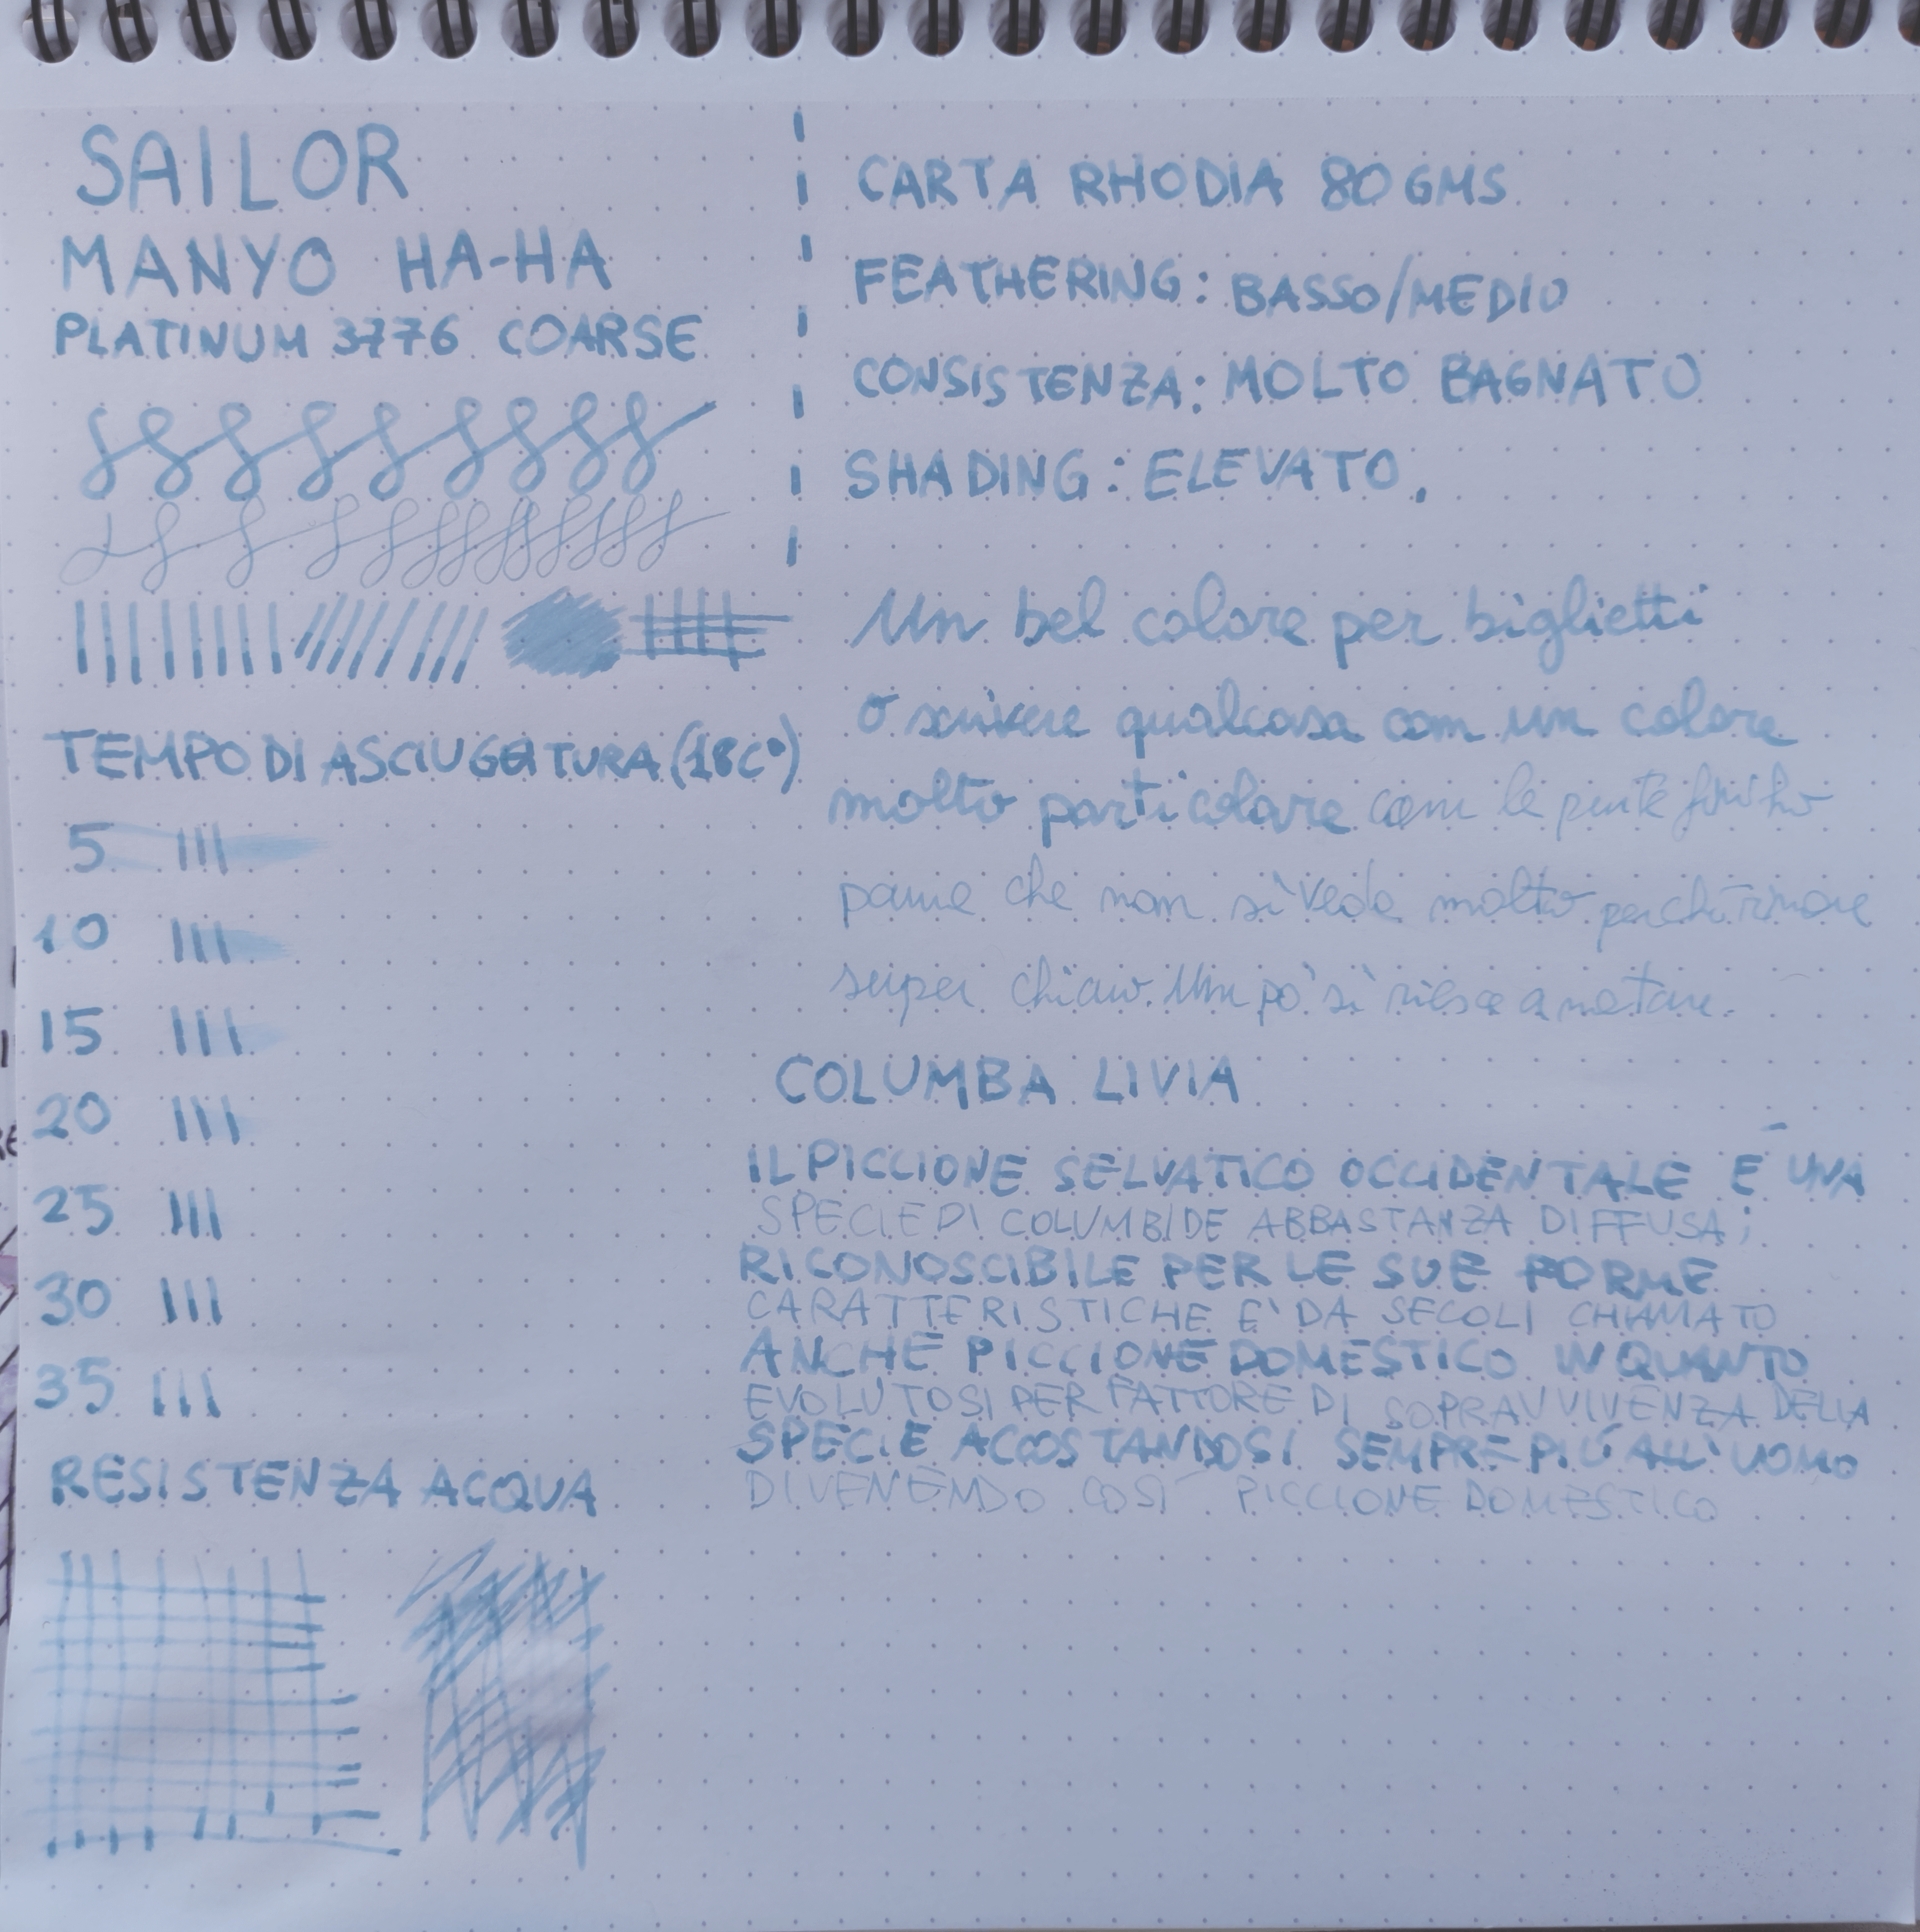 SAILOR
MANYO HA-HA
PLATINUM 3776 COARSE
TEMPO DI ASCIUGATURA (18C°)
5
10
15
20
25
30
35
RESISTENZA ACQUA
CARTA RHODIA 80 GMS
FEATHERING: BASSO/MEDIO
CONSISTENZA: MOLTO BAGNATO
SHADING: ELEVATO.
Un bel colore per biglietti
o scrivere qualcosa con un colore
molto particolare con le punte
che non si veda molto perché rimane
super chiaro. Un po' si riesce a notare.
COLUMBA LIVIA
IL PICCIONE SELVATICO OCCIDENTALE É UNA
SPECIE DI COLUMBIDE ABBASTANZA DIFFUSA;
RICONOSCIBILE PER LE SUE FORME
CARATTERISTICHE E' DA SECOLI CHIAMATO
ANCHE PICCIONE DOMESTICO IN QUANTO
EVOLUTOSI PER FATTORE DI SOPRAVVIVENZA DELLA
SPECIE ACCOSTANDOSI SEMPRE PIÚ ALL'UOMO
DIVENENDO COSÍ PICCIONE DOMESTICO